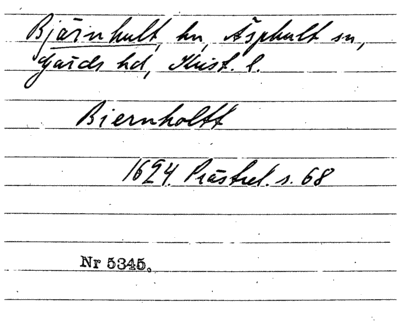 Bjärnhult, hn, Äsphult sn,
Gärds hd, Krist. l.
Biernholtt
1624 Prästrel. s. 68
Nr 5345.